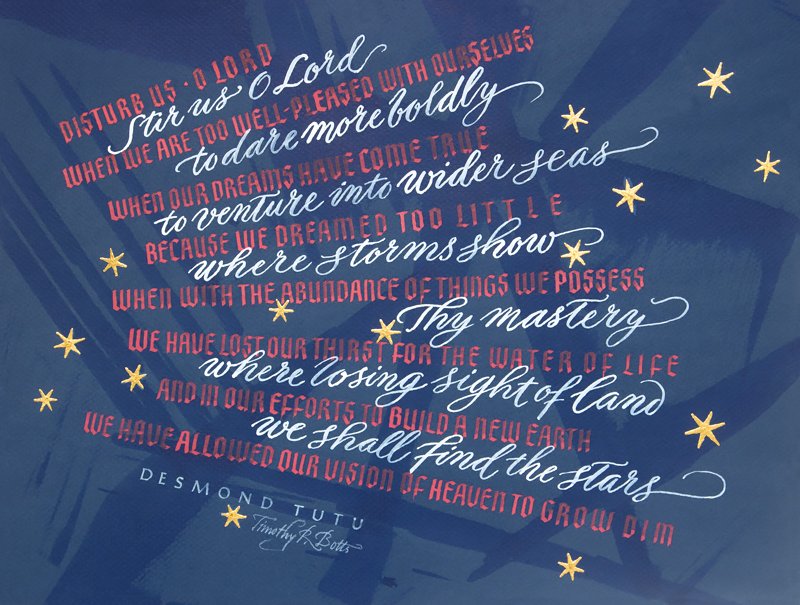 DISTURB US · O LORD
Stir us O Lord
WHEN WE ARE TOO WELL-PLEASED WITH OURSELVES
to dare more boldly
WHEN OUR DREAMS HAVE COME TRUE
to venture into wider seas
BECAUSE WE DREAMED TOO LITTLE
where storms show
WHEN WITH THE ABUNDANCE OF THINGS WE POSSESS
Thy mastery
WE HAVE LOST OUR THIRST FOR THE WATER OF LIFE
where losing sight of land
AND IN OUR EFFORTS TO BUILD A NEW EARTH
we shall find the stars
WE HAVE ALLOWED OUR VISION OF HEAVEN TO GROW DIM
DESMOND TUTU
Timothy R. Botts